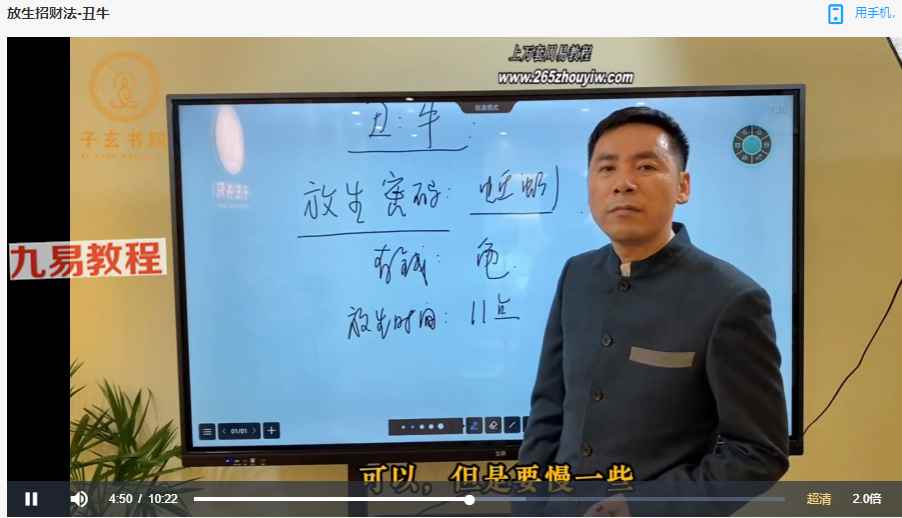 放生招财法-丑牛
用手机,
上万套周易教程
www.265zhouyiw.com
子玄书院
丑:牛
放生密码:蚯蚓
九易教程
有钱:龟
放生时间:11点
01/01
可以,但是要慢一些
4:50 / 10:22
超清
2.0倍